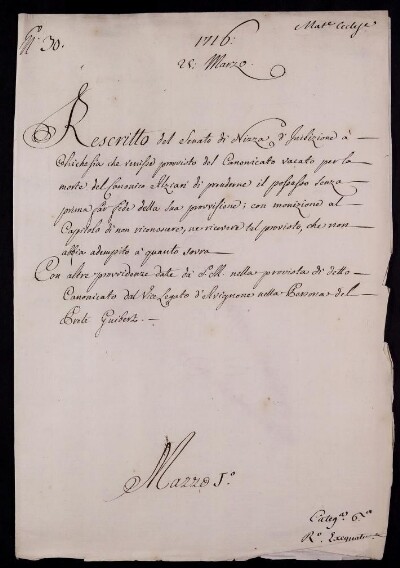 Mat.e Eccles.e
N.o 30.
1716:
25: Marzo.
Rescritto del Senato di Nizza d'Inibizione à
Chichesia che venisse provisto del Canonicato vacato per la
morte del Canonico Alziari di prenderne il possesso senza
prima far fede della sua provvisione; con monizione al
Capitolo di non riconoscere, ne ricevere tel provisto, che non
abbia adempito à quanto sovra
Con altre providenze date da S.M. nella provista di detto
Canonicato dal Vice Legato d'Avignone nella Persona del
Prete Guibert.
Mazzo 1.o
Categ.a 6.a
R.o Exequatur